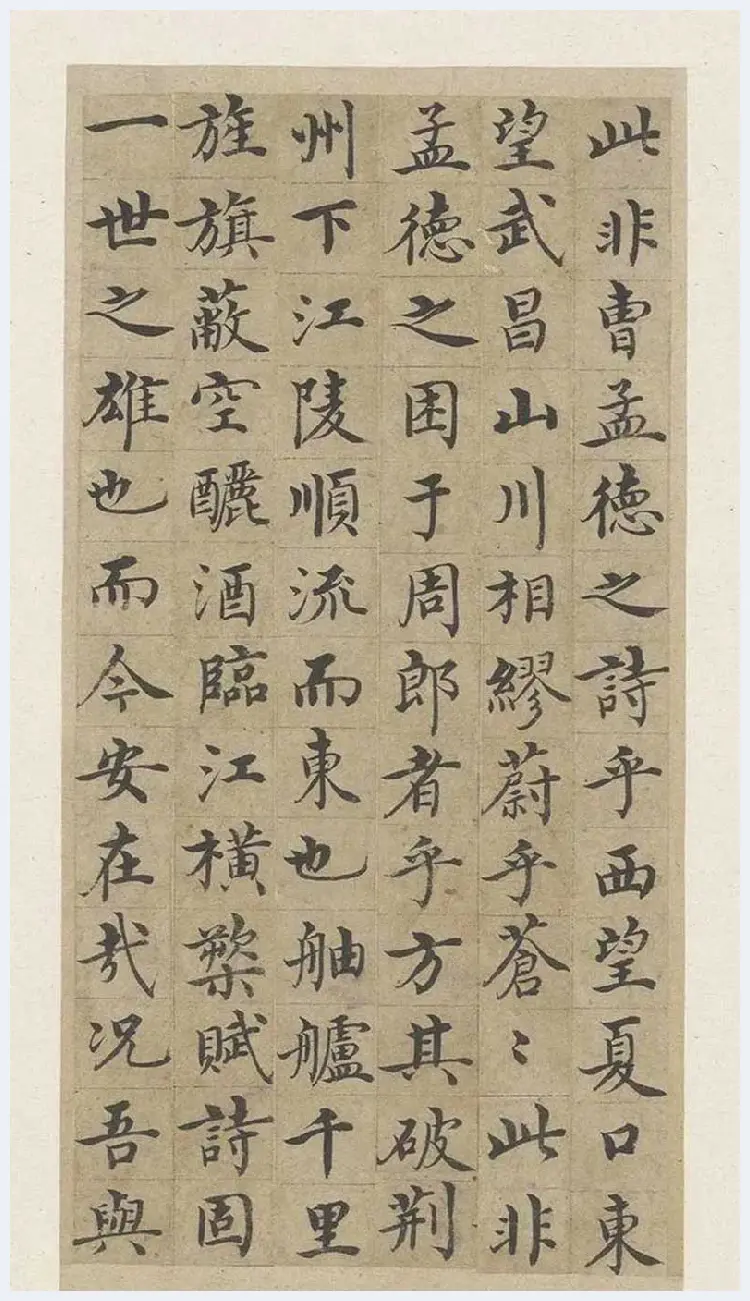 此非曹孟德之詩乎西望夏口東
望武昌山川相繆蔚乎蒼〻此非
孟德之困于周郎者乎方其破荆
州下江陵順流而東也舳艫千里
旌旗蔽空釃酒臨江橫槊賦詩固
一世之雄也而今安在㦲況吾與